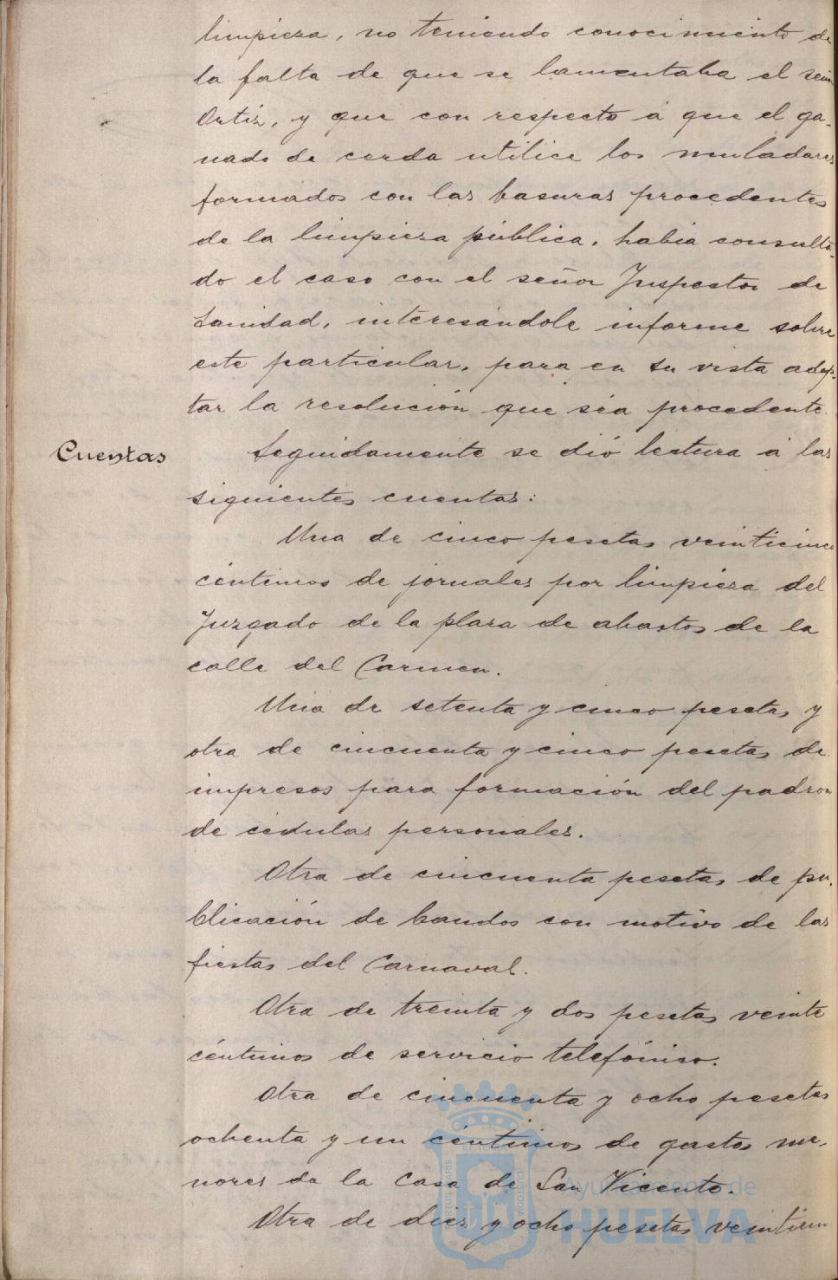 limpieza, no teniendo conocimiento de
la falta de que se lamentaba el señor
Ortiz, y que con respecto á que el ga-
nado de cerda utilice los muladares
formados con las basuras procedentes
de la limpieza pública, habia consulta-
do el caso con el señor Inspector de
Sanidad, interesándole informe sobre
este particular, para en su vista adop-
tar la resolución que séa procedente.
Cuentas
Seguidamente se dió lectura á las
siguientes cuentas:
Una de cinco pesetas veinticinco
céntimos de jornales por limpieza del
Juzgado de la plaza de abastos de la
calle del Carmen.
Una de setenta y cinco pesetas y
otra de cincuenta y cinco pesetas de
impresos para formación del padron
de cédulas personales.
Otra de cincuenta pesetas de pu-
blicación de bandos con motivo de las
fiestas del Carnaval.
Otra de treinta y dos pesetas veinte
céntimos de servicio telefónico.
Otra de cincuenta y ocho pesetas
ochenta y un céntimos de gastos me-
nores de la Casa de San Vicente.
Otra de diez y ocho pesetas veintiun
Ayuntamiento de
HUELVA